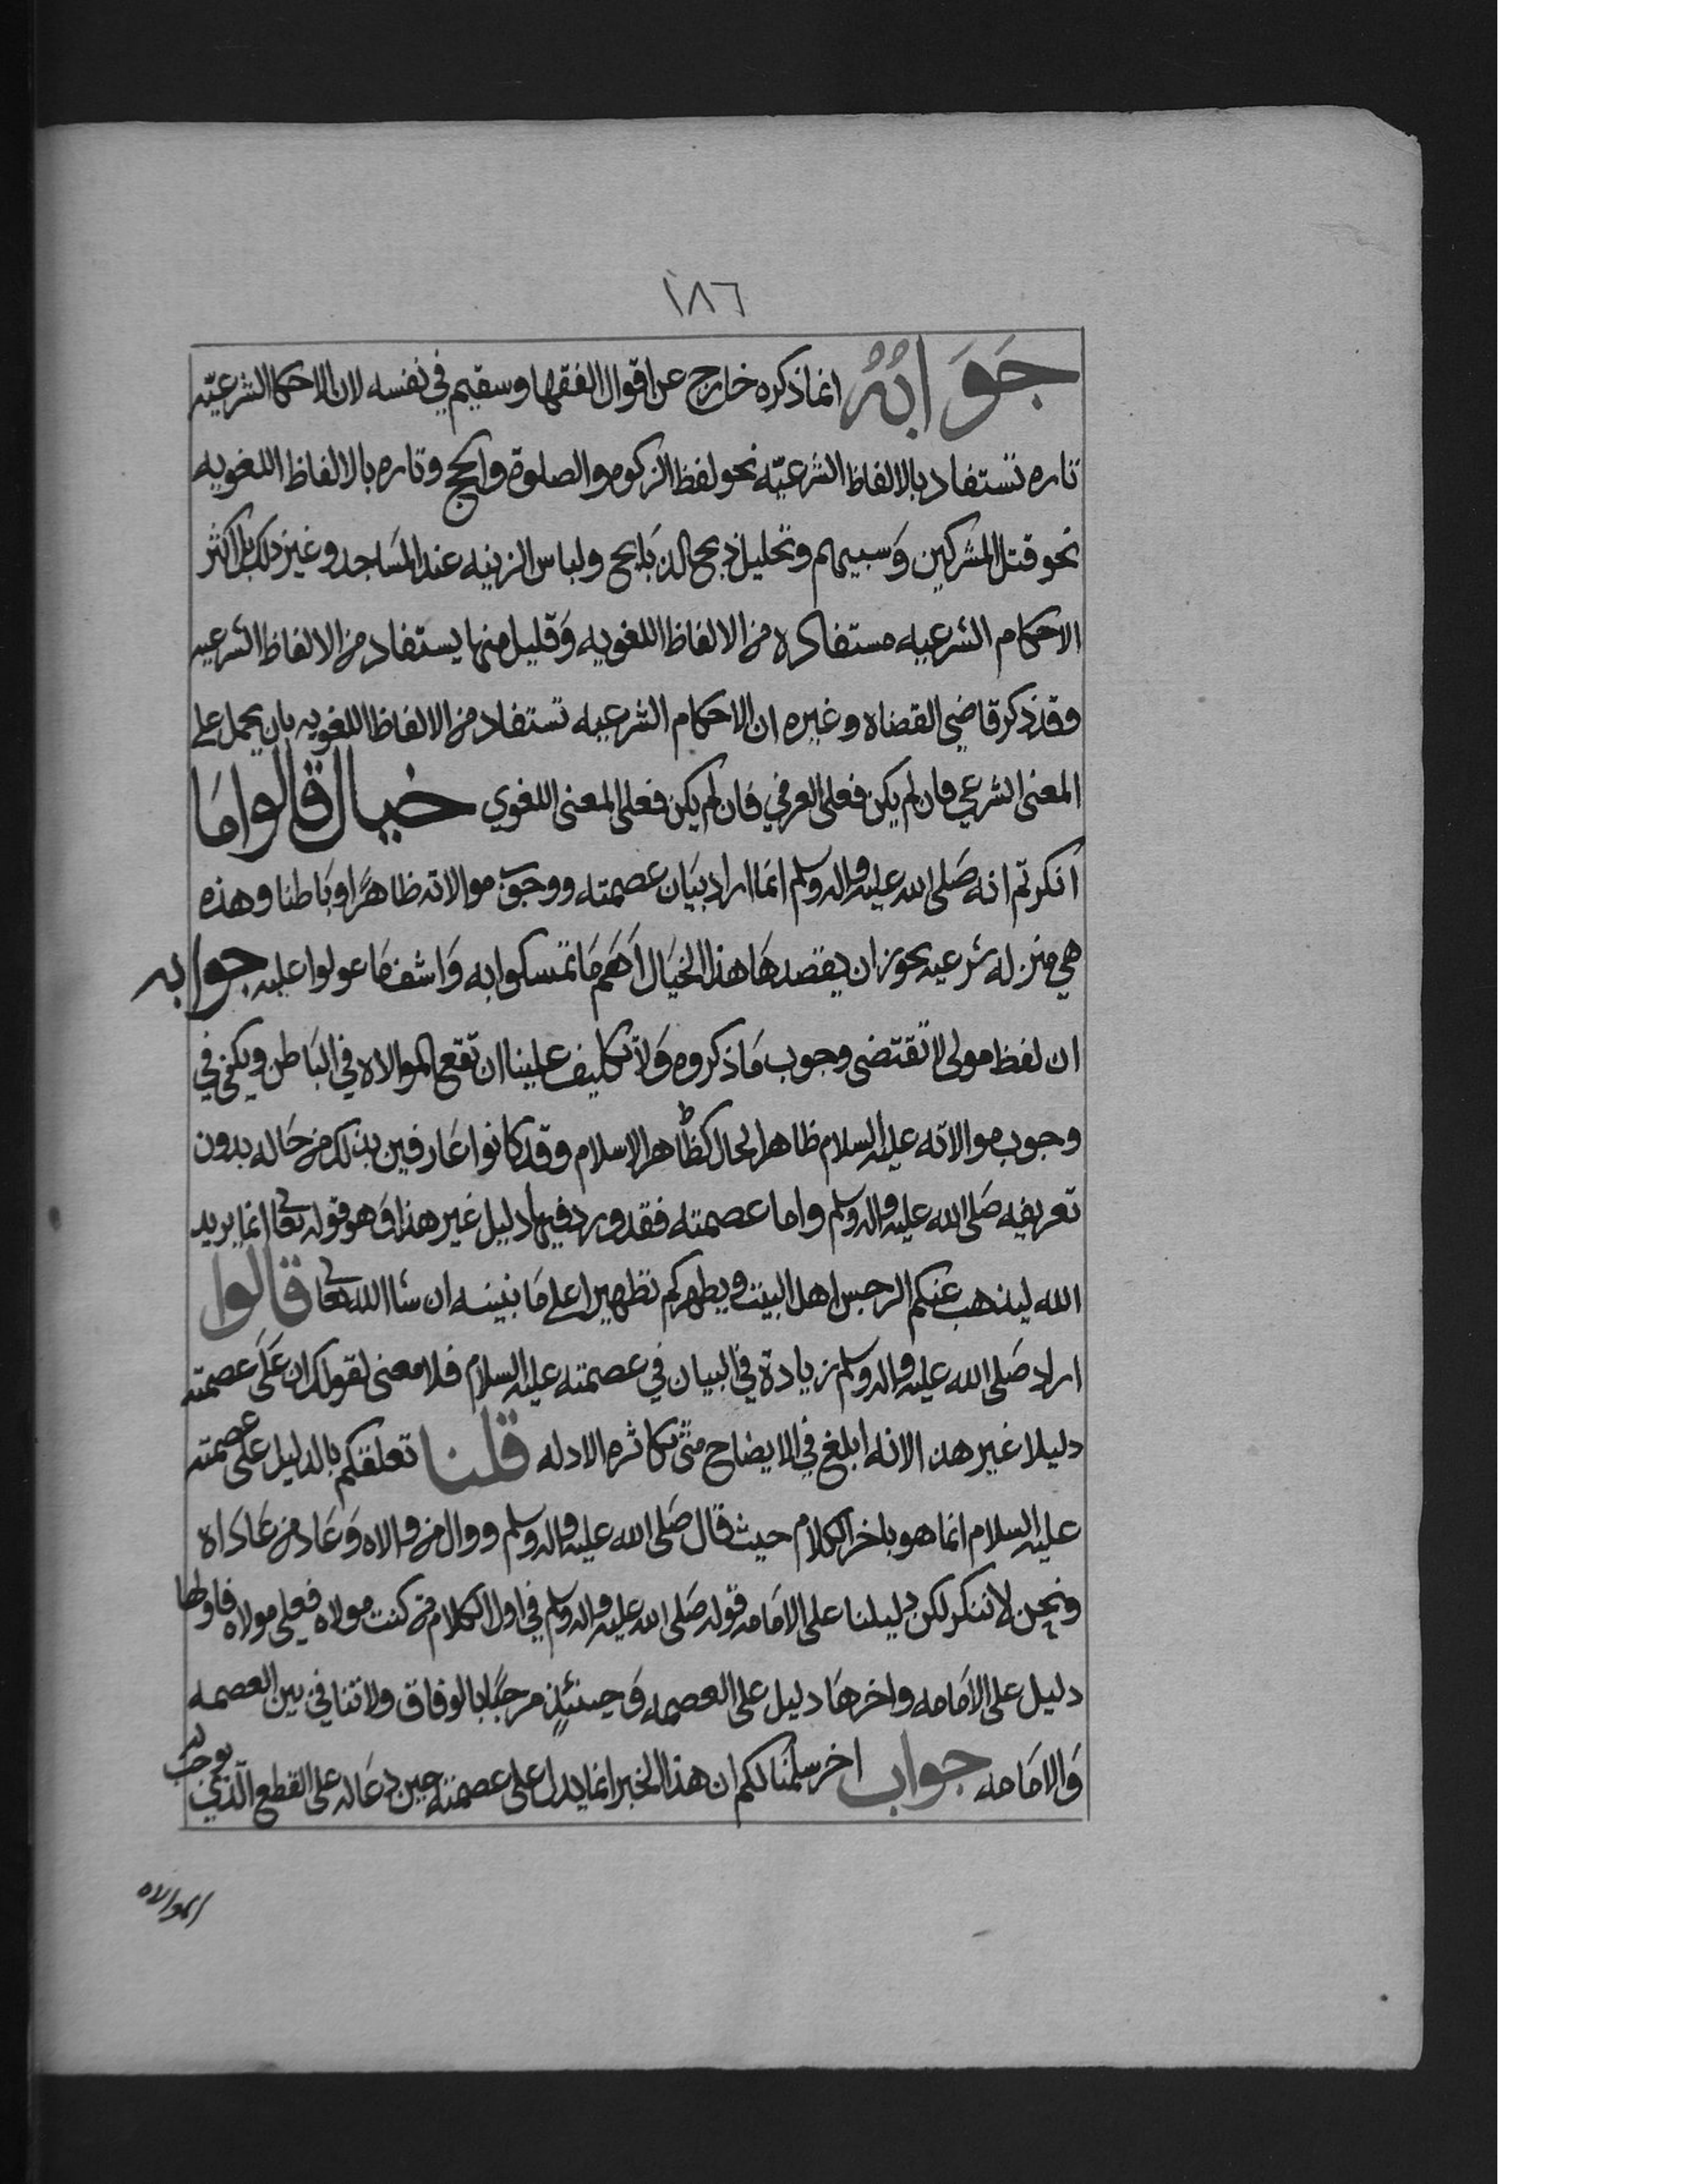 ١٨٦
جَوَابُهُ انما ذكره خارج عن اقوال الفقها وسقيم في نفسه لان الاحكام الشرعيّه
تاره تستفاد بالالفاظ الشرعيّه نحو لفظ الزكوه والصلوة والحج وتاره بالالفاظ اللغويه
نحو قتل المشركين وَسبيهم وتحليل ذبح الذبَايح ولباس الزينه عند المسَاجد وغير ذلك بل اكثر
الاحكام الشرعيه مستفاده من الالفاظ اللغويه وَقليل منها يستفاد من الالفاظ الشرعيه
وقد ذكر قاضي القضاه وغيره ان الاحكام الشرعيه تستفاد من الالفاظ اللغويه بان يحمل على
المعنى الشرعي فان لم يكن فعلى العرفي فان لم يكن فعلى المعنى اللغوي خيال قالوا مَا
انكرتم انه صَلى الله عليه واله وسلم انمَا اراد بيَان عصمته ووجوب موالاته ظاهرًا وبَاطنا وهذه
هي منزله شرعيه يجوز ان يقصدهَا هذا الخيَال اَهَم مَا تمسكوا به وَاشف مَا عولوا عليه جوابه
ان لفظ مولى لا تقتضي وجوب مَا ذكروه وَلا تكليف علينا ان تقع الموالاه في البَاطن ويكفي في
وجوب موالاته عليه السلام ظاهر الحال كظاهر الاسلام وقد كانوا عَارفين بذلك من حَاله بدون
تعريفه صَلى الله عليه واله وسلم واما عصمته فقد ورد فيها دليل غير هذا وَهو قوله تعالى انما يريد
الله ليذهب عنكم الرجس اهل البيت ويطهركم تطهيرا على مَا نبينه ان شا الله تعالى قالوا
اراد صَلى الله عليه واله وسلم زيادة في البيان في عصمته عليه السلام فلا معنى لقولك ان عَلَى عصمته
دليلا غير هذا لانه ابلغ في الايضاح متى تكاثره الادله قلنا تعلقكم بالدليل على عصمته
عليه السلام انما هو باخر الكلام حيث قال صَلى الله عليه واله وسلم ووال من والاه وَعَاد من عَادَاه
ونحن لا ننكر لكن دليلنا على الامَامه قوله صَلى الله عليه واله وسلم في اول الكلام من كنت مولاه فعلي مولاه فاولها
دليل على الامَامه واخرهَا دليل على العصمه وَحينئذٍ مرحبًا بالوفاق ولا تنافي بين العصمه
وَالامَامه جواب اخر سلمنَا لكم ان هذا الخبر انما يدل على عصمته حين دعَا له على القطع الذي يوجب
الموالاه